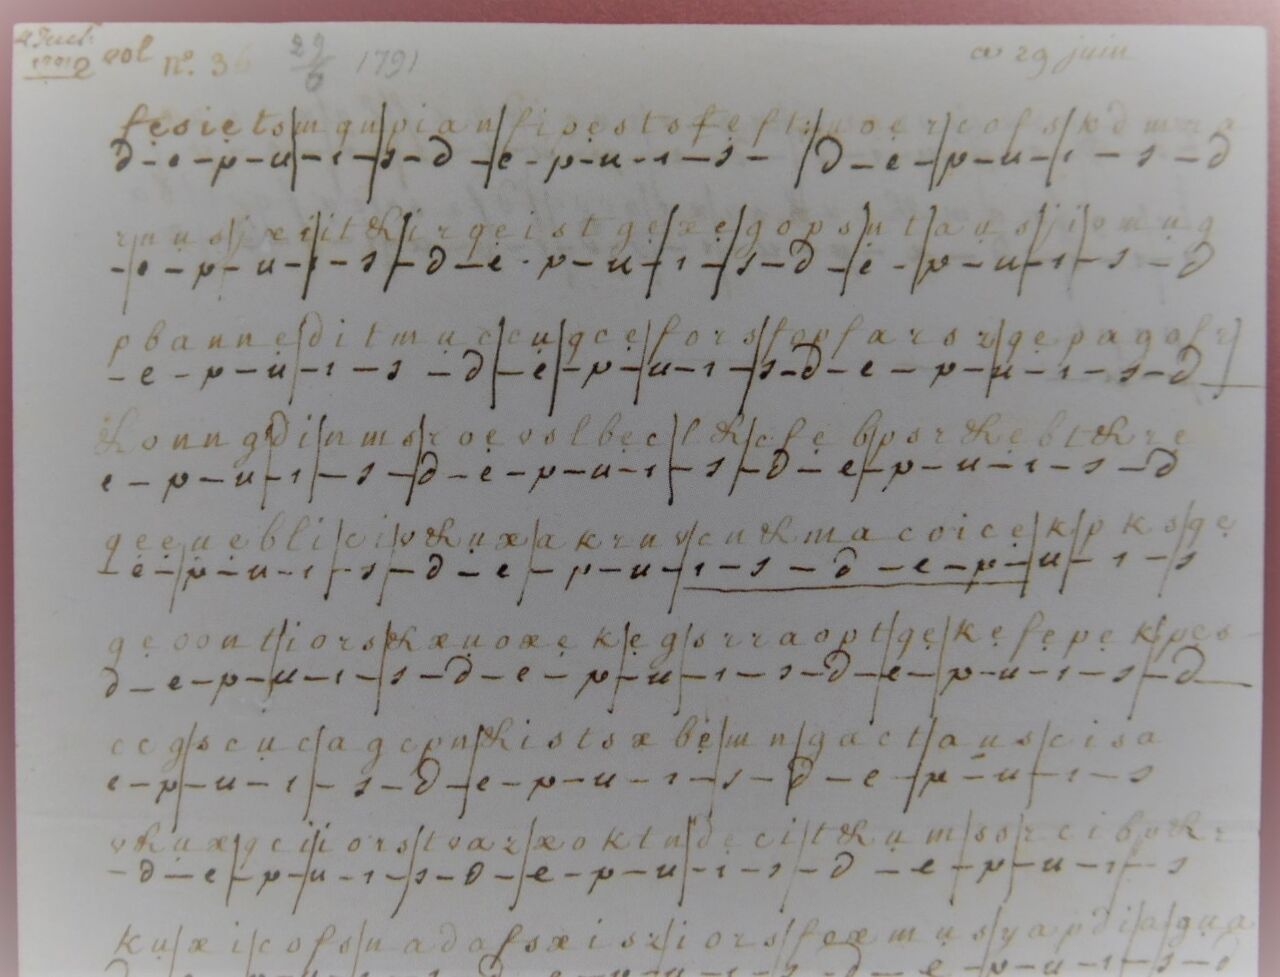 col n.° 36 29/6 1791 a 29 juin
fesiets/mqn/pian/fipestsfeft:/noer/cofs/kdmra
d-e-p-u-i-s-d-e-p-u-i-s-/d-e-p-u-i-s-d
r/nus/jxi/it&/irqeist ge/xe/gops/nt/aus/ji/omug
-e-p-u-i-s-d-e-p-u-i-s-d-e-p-u-i-s-d
pbanne/ditmuc/cu/qce/fors/topfarsr/qepagofr/
-e-p-u-i-s-d-e-p-u-i-s-d-e-p-u-i-s-d
&onng/di/nms/roevslbec/l&/cfeb/psr&ebt&re
e-p-u-i-s-d-e-p-u-i-s-d-e-p-u-i-s-d
qeeuebli/ci/v&ux/akruv/cu&macoice/k/pks/ge
-e-p-u-i-s-d-e-p-u-i-s-d-e-p-u-i-s
geoont/iors/&xuoxek/eg/srraopt/qe/kefepek/pes
d-e-p-u-i-s-d-e-p-u-i-s-d-e-p-u-i-s-d
ccg/scuc/agcpn/&istsxbe/mn/gact/aus/cisa
e-p-u-i-s-d-e-p-u-i-s-d-e-p-u-i-s
v&ux/qci/iors/tvaz/xoktn/deci/t&um/ss/rcibv&r
-d-e-p-u-i-s-d-e-p-u-i-s-d-e-p-u-i-s
ku/xi/cofs/nadafsxisz/iors/fexmus/yapdi/a/gua